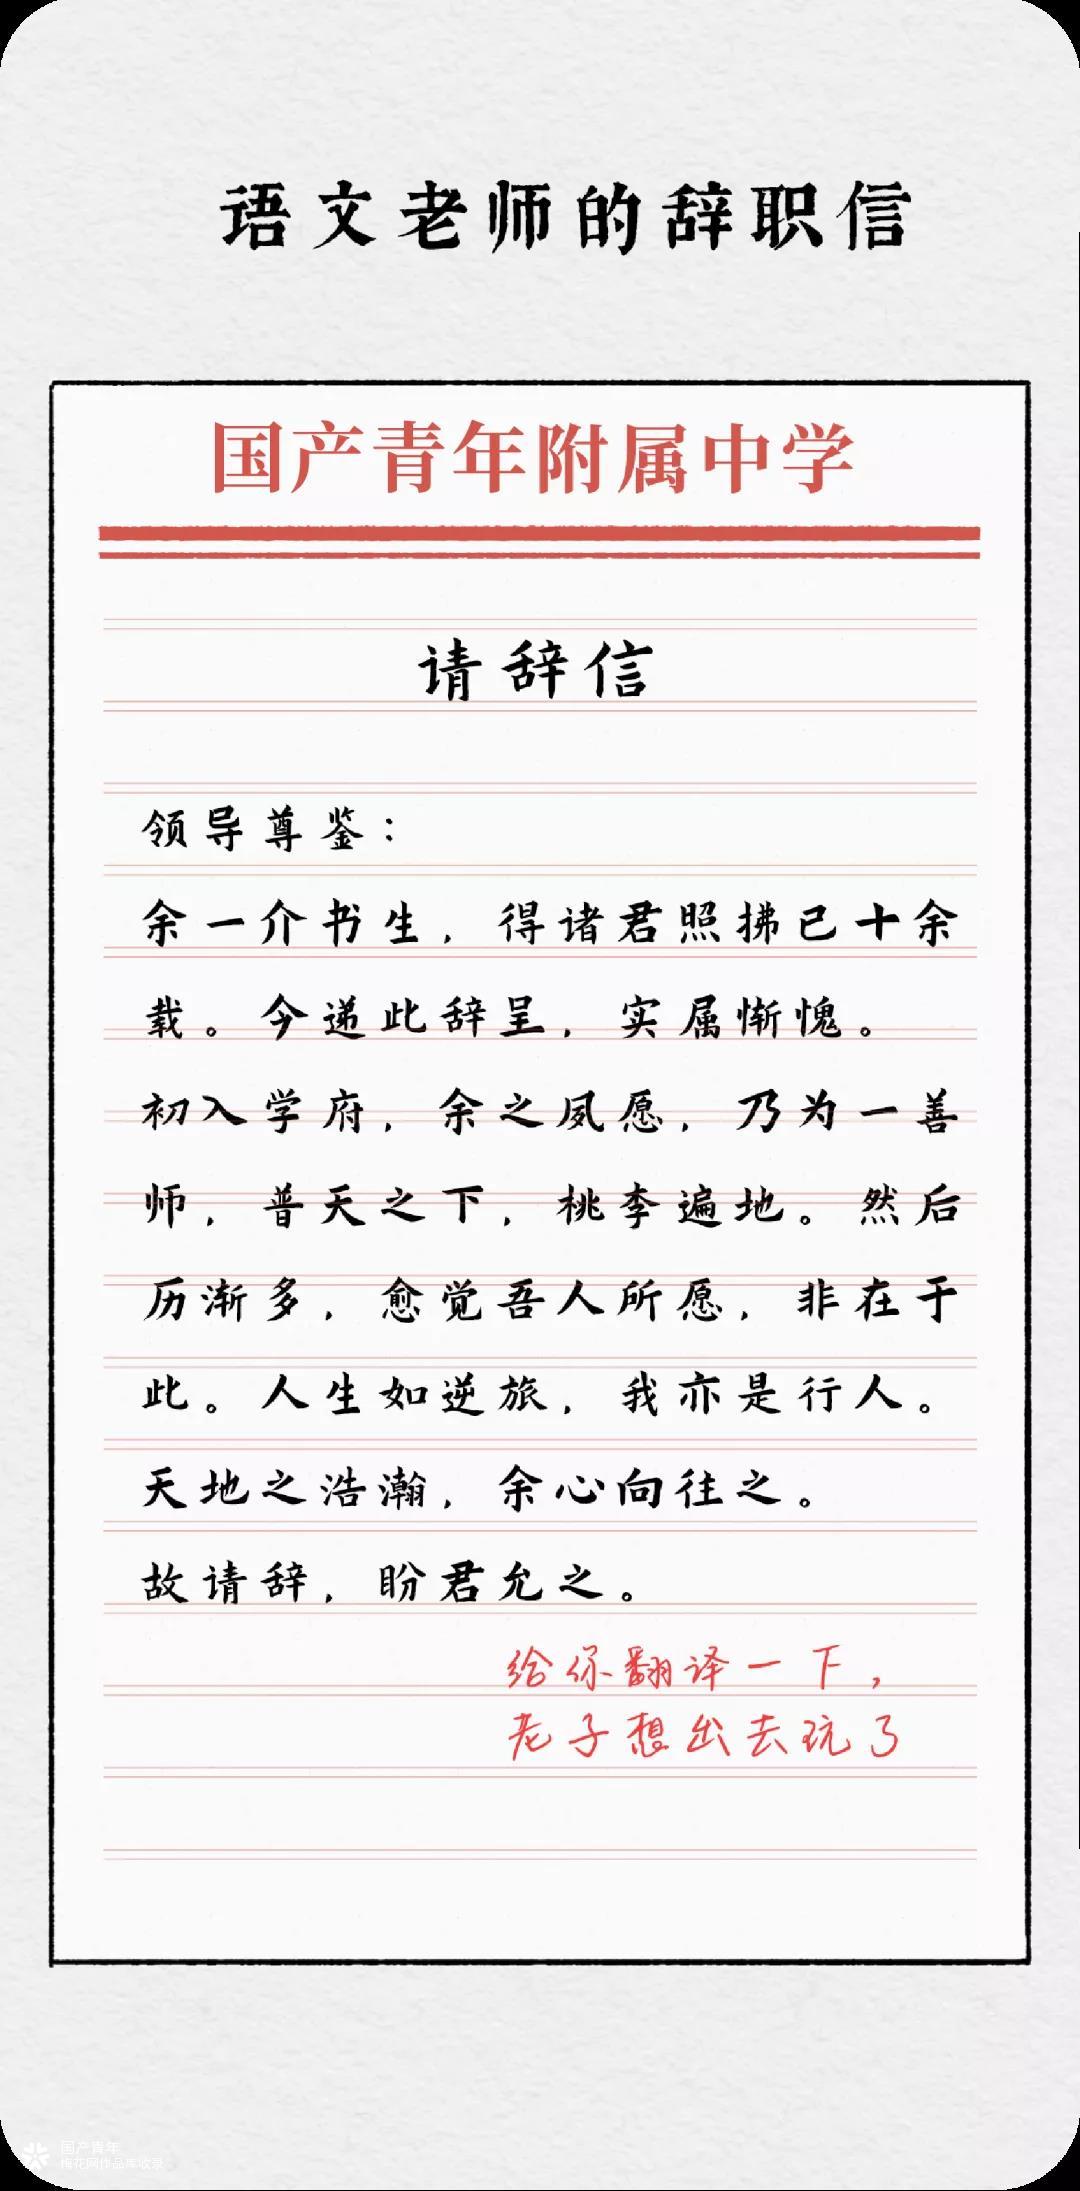 语文老师的辞职信
国产青年附属中学
请辞信
领导尊鉴：
余一介书生，得诸君照拂已十余
载。今递此辞呈，实属惭愧。
初入学府，余之夙愿，乃为一善
师，普天之下，桃李遍地。然后
历渐多，愈觉吾人所愿，非在于
此。人生如逆旅，我亦是行人。
天地之浩瀚，余心向往之。
故请辞，盼君允之。
给你翻译一下，
老子想出去玩了
国产青年
梅花网作品库收录